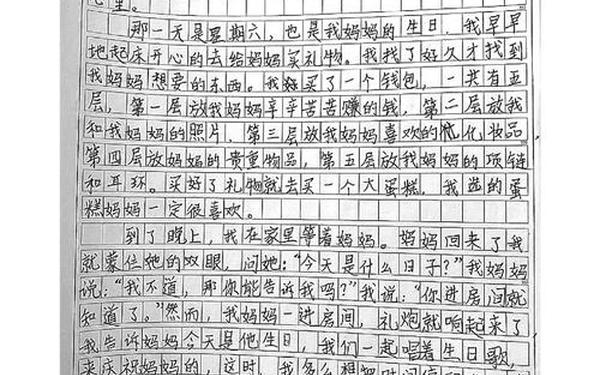 那一天是星期六，也是我妈妈的生日，我早早
地起床开心的去给妈妈买礼物。我找了好久才找到
我妈妈想要的东西。我买了一个钱包，一共有五
层，第一层放我妈妈辛辛苦苦赚的钱，第二层放我
和我妈妈的照片，第三层放我妈妈喜欢的化妆品
第四层放妈妈的贵重物品，第五层放我妈妈的项链
和耳环。买好了礼物就去买一个大蛋糕，我选的蛋
糕妈妈一定很喜欢。
到了晚上，我在家里等着妈妈。妈妈回来了我
就蒙住她的双眼，问她：“今天是什么日子？”我妈妈
说：“我不道，那你能告诉我吗？”我说：“你进房间就
知道了。”然而，我妈妈一进房间，礼炮就响起来了
我告诉妈妈今天是他生日，我们一起唱着生日歌，
来庆祝妈妈的，这时，我多么想把时间